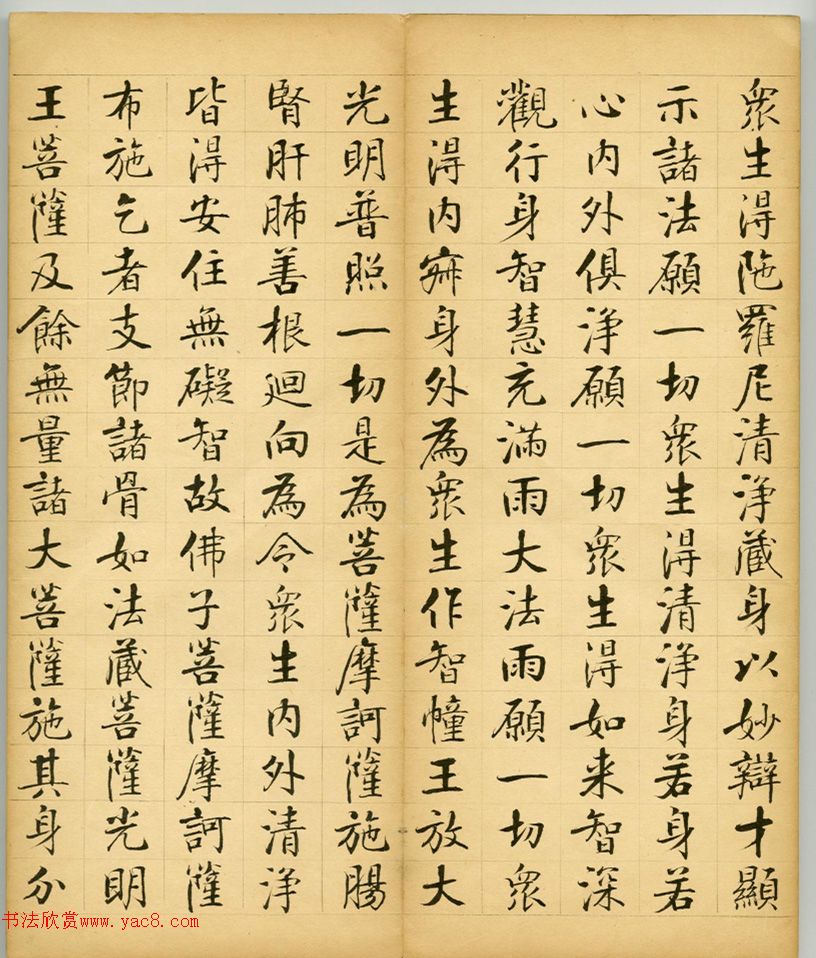 衆生得陁羅尼清淨藏身以妙辯才顯
示諸法願一切衆生得清淨身若身若
心内外俱淨願一切衆生得如来智深
觀行身智慧充滿雨大法雨願一切衆
生得内寂身外為衆生作智幢王放大
光明普照一切是為菩薩摩訶薩施腸
腎肝肺善根迴向為令衆生内外清淨
皆得安住無礙智故佛子菩薩摩訶薩
布施乞者支節諸骨如法藏菩薩光明
王菩薩及餘無量諸大菩薩施其身分
书法欣赏www.yac8.com